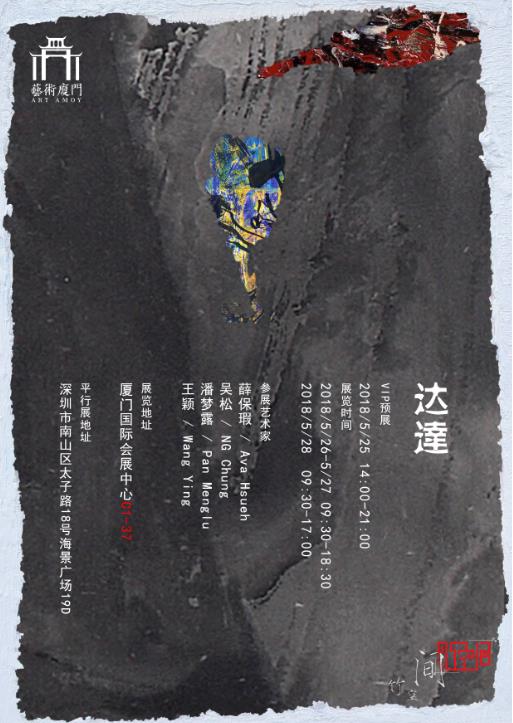 藝術廈門
ART AMOY
达達
VIP预展
2018/5/25 14:00-21:00
展览时间
2018/5/26-5/27 09:30-18:30
2018/5/28 09:30-17:00
参展艺术家
薛保瑕 / Ava Hsueh
吴松 / NG Chung
潘梦露 / Pan Menglu
王颖 / Wang Ying
展览地址
厦门国际会展中心C1-37
平行展地址
深圳市南山区太子路18号海景广场19D
间
竹